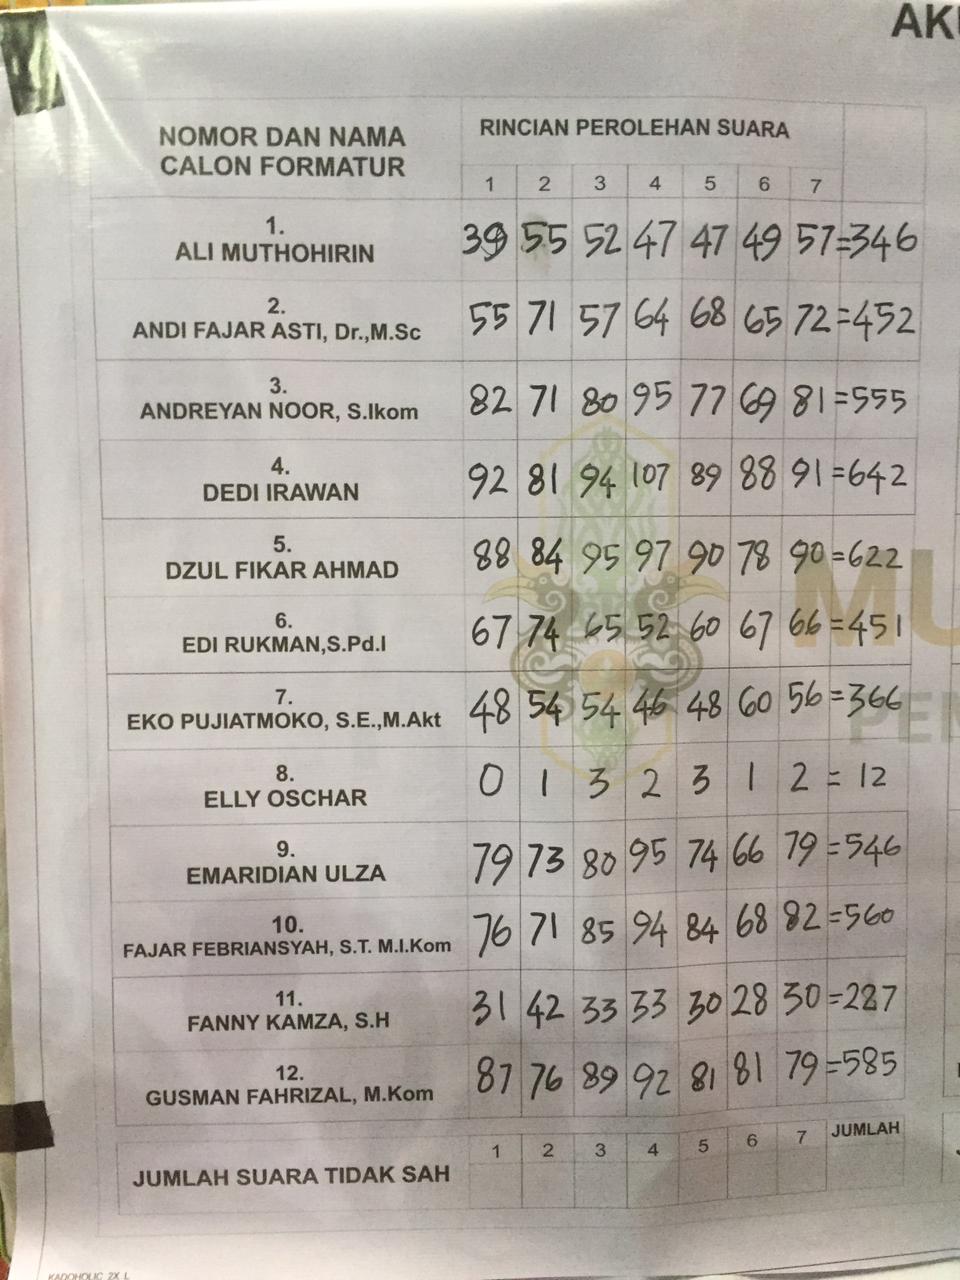 AK
NOMOR DAN NAMA
CALON FORMATUR
RINCIAN PEROLEHAN SUARA
1 2 3 4 5 6 7
1.
ALI MUTHOHIRIN
39 55 52 47 47 49 57=346
2.
ANDI FAJAR ASTI, Dr.,M.Sc
55 71 57 64 68 65 72=452
3.
ANDREYAN NOOR, S.Ikom
82 71 80 95 77 69 81=555
4.
DEDI IRAWAN
92 81 94 107 89 88 91=642
5.
DZUL FIKAR AHMAD
88 84 95 97 90 78 90=622
MU
6.
EDI RUKMAN,S.Pd.I
67 74 65 52 60 67 66=451
7.
EKO PUJIATMOKO, S.E.,M.Akt
48 54 54 46 48 60 56=366
PEN
8.
ELLY OSCHAR
0 1 3 2 3 1 2 = 12
9.
EMARIDIAN ULZA
79 73 80 95 74 66 79=546
10.
FAJAR FEBRIANSYAH, S.T. M.I.Kom
76 71 85 94 84 68 82=560
11.
FANNY KAMZA, S.H
31 42 33 33 30 28 30=227
12.
GUSMAN FAHRIZAL, M.Kom
87 76 89 92 81 81 79=585
JUMLAH SUARA TIDAK SAH
1 2 3 4 5 6 7 JUMLAH
KADOHOLIC 2X L